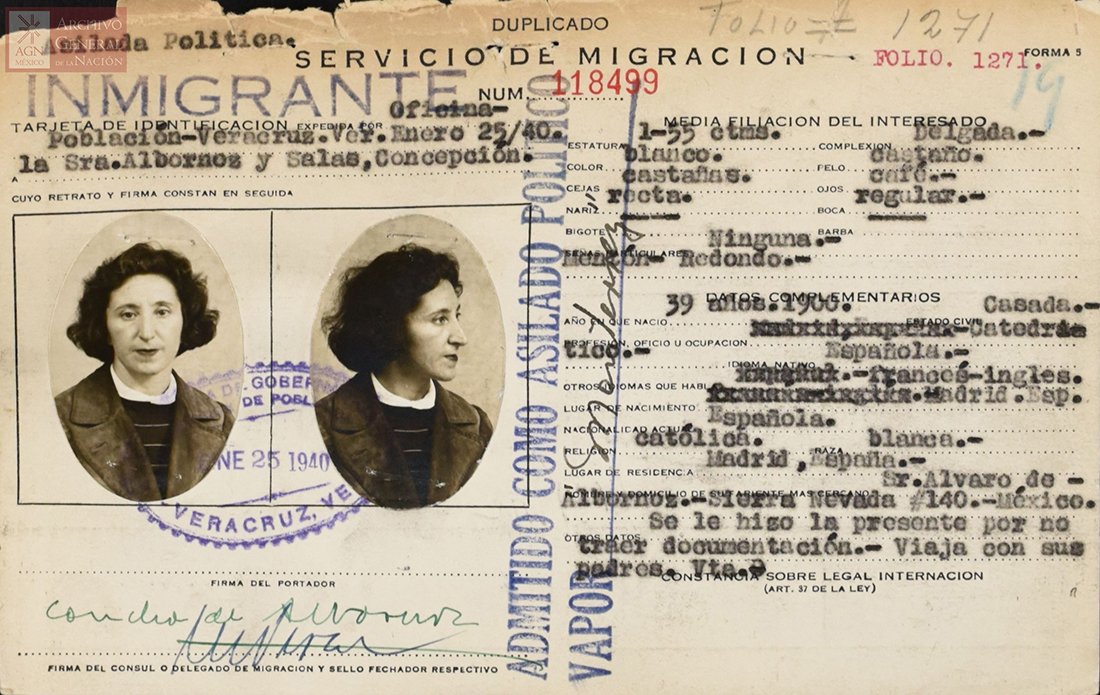 ARCHIVO
GENERAL
DE LA NACIÓN
AGN
MÉXICO
Política.
DUPLICADO
FOLIO 1271
SERVICIO DE MIGRACION
FOLIO. 1271.
FORMA 5
19
INMIGRANTE
NUM. 118499
Oficina-
TARJETA DE IDENTIFICACION EXPEDIDA POR
Población-Veracruz.Ver.Enero 25/40.
la Sra.Albornoz y Salas,Concepción.
A
CUYO RETRATO Y FIRMA CONSTAN EN SEGUIDA
DE GOBER
DE POBL
ENE 25 1940
VERACRUZ, VE
FIRMA DEL PORTADOR
Concha de Albornoz
FIRMA DEL CONSUL O DELEGADO DE MIGRACION Y SELLO FECHADOR RESPECTIVO
ADMITIDO COMO ASILADO POLITICO
VAPOR
MEDIA FILIACION DEL INTERESADO
1-55 ctms. Delgada.-
ESTATURA COMPLEXION
blanco. castaño.
COLOR PELO
castañas. café.-
CEJAS OJOS
recta. regular.-
NARIZ BOCA
BIGOTE BARBA
Ninguna.-
SEÑAS PARTICULARES
Mentón- Redondo.-
DATOS COMPLEMENTARIOS
39 años.1900. Casada.-
AÑO EN QUE NACIO ESTADO CIVIL
-Catedrá
PROFESIÓN, OFICIO U OCUPACION
tico.- Española.-
IDIOMA NATIVO
.-francés-ingles.
OTROS IDIOMAS QUE HABLA
Madrid.Esp.
LUGAR DE NACIMIENTO
Española.
NACIONALIDAD ACTUAL
católica. blanca.-
RELIGION RAZA
Madrid,España.-
LUGAR DE RESIDENCIA
Sr.Alvaro de -
Albornoz.-Sierra Nevada #140.-México.
Se le hizo la presente por no
OTROS DATOS
traer documentación.- Viaja con sus
padres. Vta.
CONSTANCIA SOBRE LEGAL INTERNACION
(ART. 37 DE LA LEY)